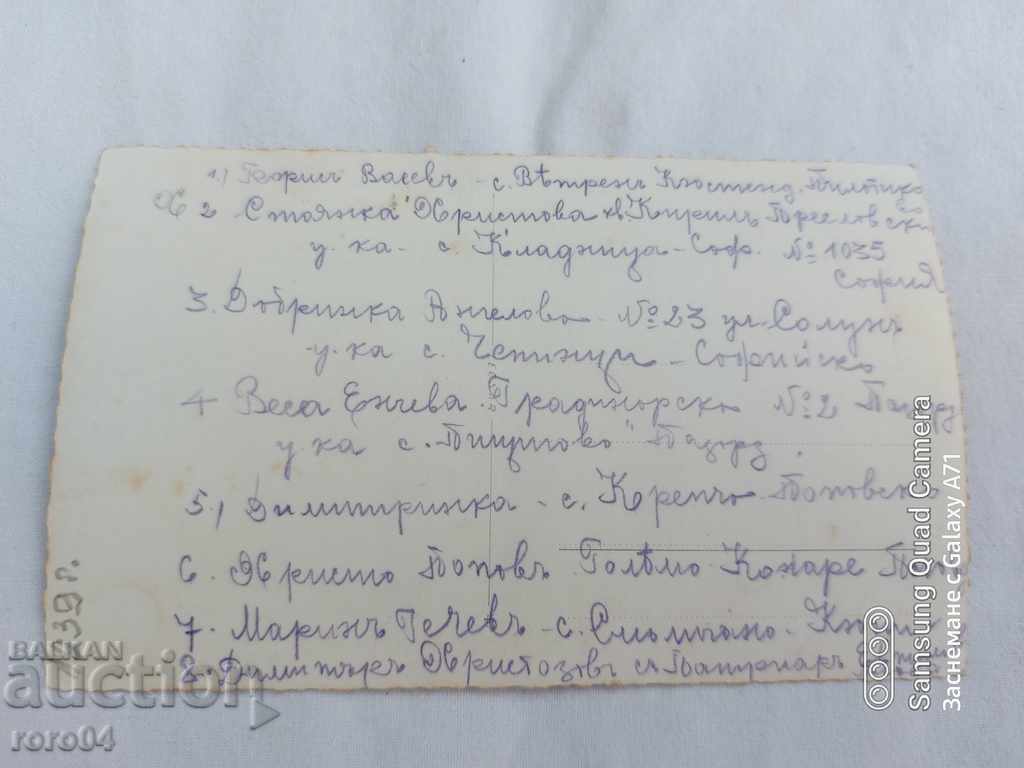 1.) Георги Васевъ - с. Вѣтренъ Кюстенд.
2 Стоянка Христова кв. Кирилъ
у-ка - с. Кладница - Соф. № 1035
София
3. Добринка Ангелова № 23 ул. Солунъ
у-ка с. Чепинци - Софийско
4 Веса Енчева Градинарска № 2 Пазрд
у-ка с. Пазрд.
5.) Димитринка - с. Корепчо Поповско
6. Христо Поповъ Голѣмо Конаре
7. Маринъ Гечевъ - с. Смолчано
8. Димитъръ Христозовъ Патриарх
1939 г.
BALKAN
auction
roro04
Samsung Quad Camera
Заснемане с Galaxy A71